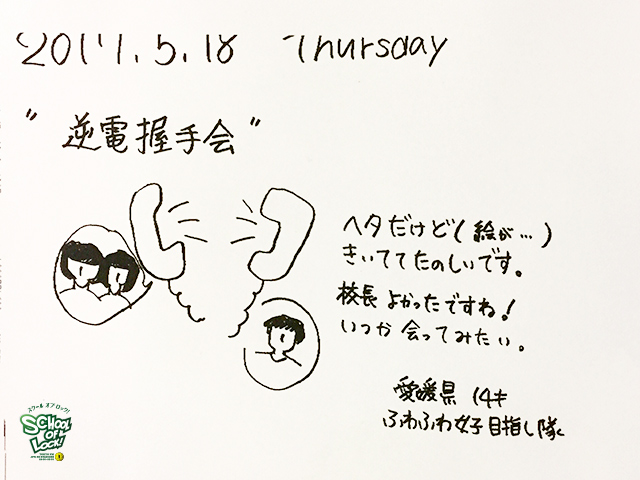 2017.5.18 Thursday
"逆電握手会"
ヘタだけど(絵が…)
きいててたのしいです。
校長よかったですね!
いつか会ってみたい。
愛媛県 14才
ふわふわ女子目指し隊
スクール オブ ロック!
SCHOOL
OF
LOCK!